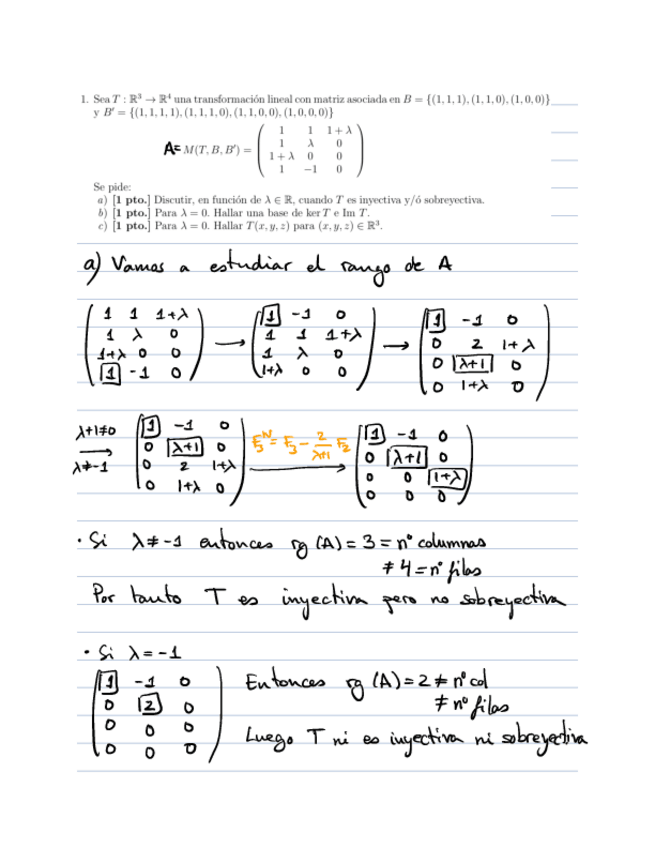 1. Sea T : ℝ³ → ℝ⁴ una transformación lineal con matriz asociada en B = {(1, 1, 1), (1, 1, 0), (1, 0, 0)}
y B′ = {(1, 1, 1, 1), (1, 1, 1, 0), (1, 1, 0, 0), (1, 0, 0, 0)}
A= M(T, B, B′) =
1 1 1 + λ
1 λ 0
1 + λ 0 0
1 −1 0
Se pide:
a) [1 pto.] Discutir, en función de λ ∈ ℝ, cuando T es inyectiva y/ó sobreyectiva.
b) [1 pto.] Para λ = 0. Hallar una base de ker T e Im T.
c) [1 pto.] Para λ = 0. Hallar T(x, y, z) para (x, y, z) ∈ ℝ³.
a) Vamos a estudiar el rango de A
( 1 1 1+λ ; 1 λ 0 ; 1+λ 0 0 ; 1 -1 0 ) → ( 1 -1 0 ; 1 1 1+λ ; 1 λ 0 ; 1+λ 0 0 ) → ( 1 -1 0 ; 0 2 1+λ ; 0 λ+1 0 ; 0 1+λ 0 )
λ+1≠0 → λ≠-1 ( 1 -1 0 ; 0 λ+1 0 ; 0 2 1+λ ; 0 1+λ 0 ) F₃ᴺ = F₃ - 2/(λ+1) F₂ → ( 1 -1 0 ; 0 λ+1 0 ; 0 0 1+λ ; 0 0 0 )
· Si λ ≠ -1 entonces rg (A) = 3 = nº columnas
≠ 4 = nº filas
Por tanto T es inyectiva pero no sobreyectiva
· Si λ = -1
( 1 -1 0 ; 0 2 0 ; 0 0 0 ; 0 0 0 ) Entonces rg (A) = 2 ≠ nº col
≠ nº filas
Luego T ni es inyectiva ni sobreyectiva